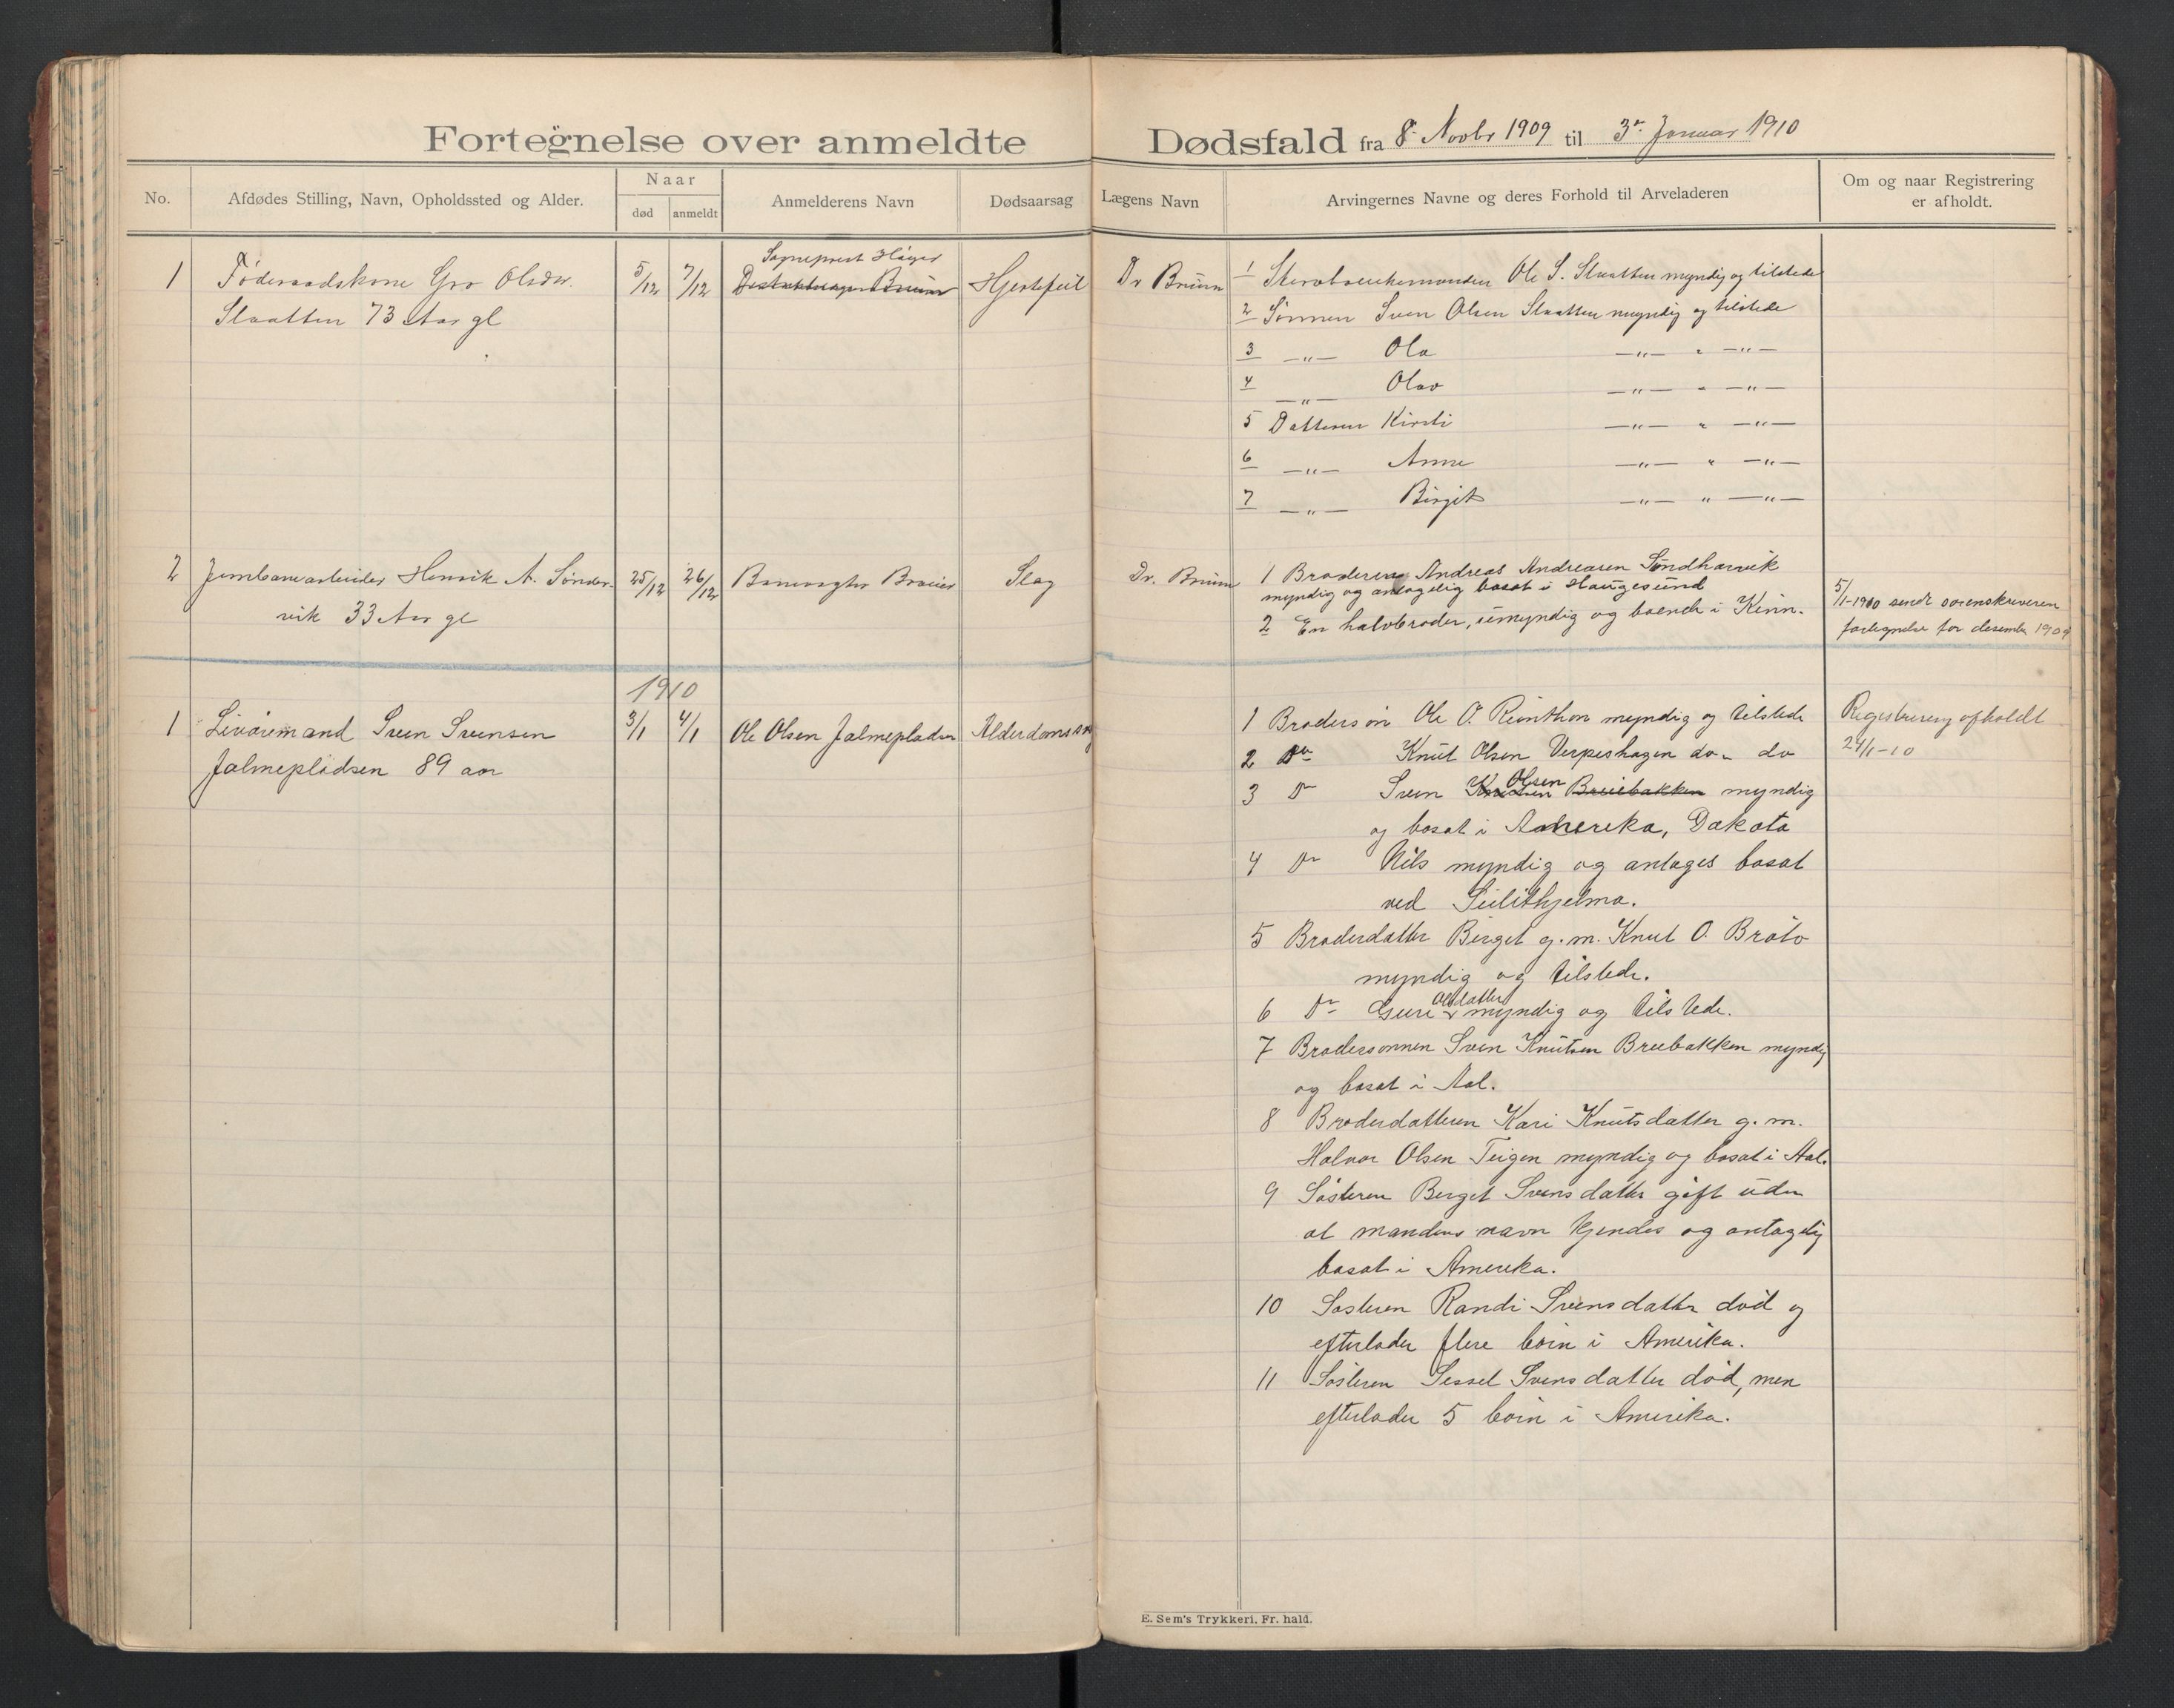 Fortegnelse over anmeldte Dødsfald fra 8 Novbr 1909 til 3' Januar 1910
No.
Afdødes Stilling, Navn, Opholdssted og Alder.
Naar
død
anmeldt
Anmelderens Navn
Dødsaarsag
Lægens Navn
Arvingernes Navne og deres Forhold til Arveladeren
Om og naar Registrering
er afholdt.
1 Føderaadskone Gro Olsdtr.
Slaatten 73 Aar gl
5/12
7/12
Sogneprest Høyer
Distriktslæge Brüun
Hjertefeil
Dr Brüun
1 Sterboenkemanden Ole S. Slaatten myndig og tilstede
2 Sønnen Sven Olsen Slaatten myndig og tilstede
3 —"— Ola —"— " —"—
4 —"— Olav —"— " —"—
5 Datteren Kirsti —"— " —"—
6 —"— Anne —"— " —"—
7 —"— Birgit —"— " —"—
2 Jernbanearbeider Henrik A. Sønder-
vik 33 Aar gl
25/12
26/12
Banevogter Braaer
Slag
Dr. Brüun
1 Broderen Andreas Andreasen Søndharvik
myndig og antagelig bosat i Haugesund
2 En halvbroder, umyndig og boende i Kinn.
5/1-1910 sendt sorenskriveren
fortegnelse for desember 1909
1910
1 Livøremand Sven Svensen
Jalmepladsen 89 aar
3/1
4/1
Ole Olsen Jalmepladsen
Alderdomssvag
1 Brodersøn Ole O. Reinthon myndig og tilstede
2 Do Knut Olsen Verpeshagen do " do
3 Do Sven Knutsen Olsen Breiebakken myndig
og bosat i Amerika, Dakota
4 Do Nils myndig og antages bosat
ved Sulithjelma.
5 Broderdatter Berget g. m. Knut O. Bråto
myndig og tilstede.
6 Do Guri Olsdatter myndig og tilstede.
7 Brodersønnen Sven Knutsen Breebakken myndig
og bosat i Aal.
8 Broderdatteren Kari Knutsdatter g. m.
Halvor Olsen Teigen myndig og bosat i Aal.
9 Søsteren Berget Svensdatter gift uden
at mandens navn kjendes og antagelig
bosat i Amerika.
10 Søsteren Randi Svensdatter død og
efterlader flere børn i Amerika.
11 Søsteren Sessel Svensdatter død, men
efterlader 5 børn i Amerika.
Registrering afholdt
24/1-10
E. Sem's Trykkeri, Fr. hald.